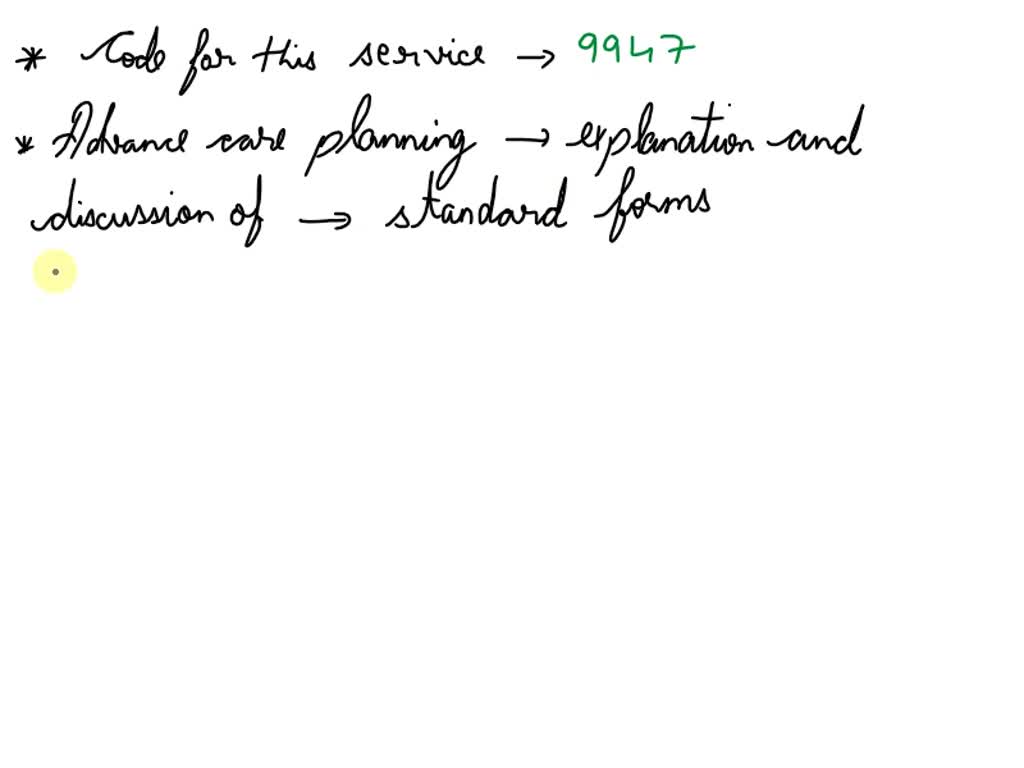 * Code for this service → 9947
* Advance care planning → explanation and
discussion of → standard forms